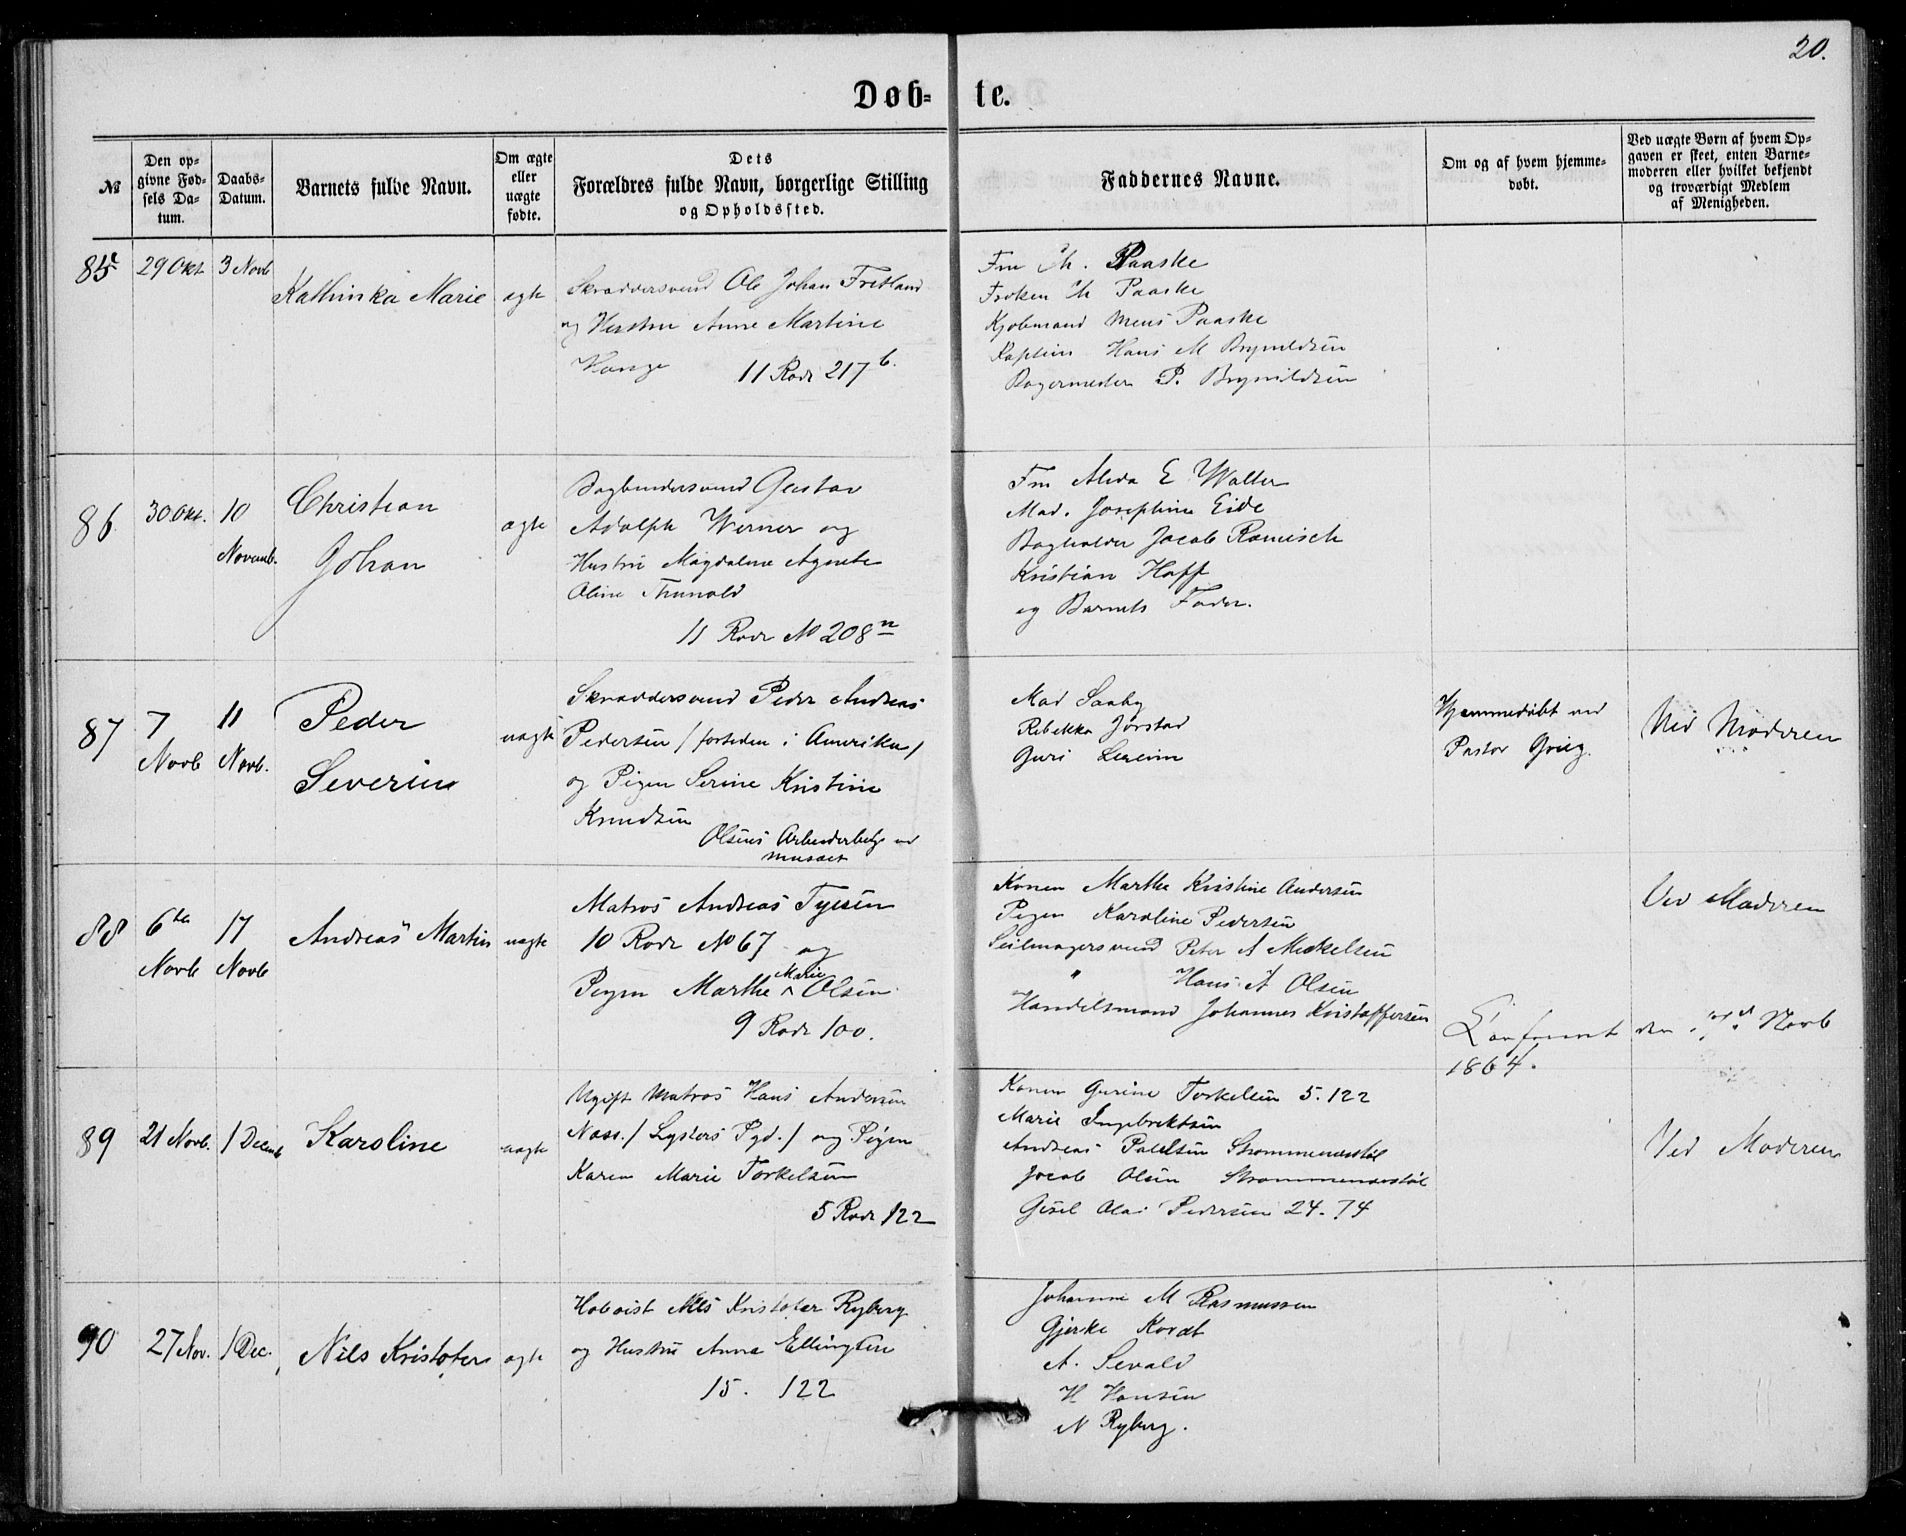 20.
Døb-te.
№
Den op-
givne Fød-
sels Da-
tum.
Daabs-
Datum.
Barnets fulde Navn.
Om ægte
eller
uægte
fødte.
Dets
Forældres fulde Navn, borgerlige Stilling
og Opholdssted.
Faddernes Navne.
Om og af hvem hjemme-
døbt.
Ved uægte Børn af hvem Op-
gaven er skeet, enten Barne-
moderen eller hvilket bekjendt
og troværdigt Medlem
af Menigheden.
85
29 Okt
3 Novb
Kathinka Marie
ægte
Skræddersvend Ole Johan Fretland
og Hustru Anne Martine
11 Rode 217 b.
Fru Ch. Paaske
Frøken Ch Paaske
Kjøbmand Mens Paaske
Kaptein Hans M Brynildsen
Bagermester P. Brynildsen
86
30 Okt.
10
Novemb.
Christian
Johan
ægte
Bogbindersvend Gustav
Adolph Werner og
Hustru Magdalene Agnete
Oline
11 Rode No 208 n
Fru Alida E Walter
Mad. Josephine Eide
Bogholder Jacob Romisch
Kristian Hoff
og Barnets Fader.
87
7
Novb
11
Novb.
Peder
Severin
uægte
Skræddersvend Peder Andreas
Pedersen / fortiden i Amerika /
og Pigen Serine Kristine
Knudsen
Olsens Arbeiderbolig ved
musæet
Mad Saaby
Rebekka Jørstad
Guri
Hjemmedøbt ved
Pastor Grieg.
Ved Moderen
88
6te
Novb
17
Novb
Andreas Martin
uægte
Matros Andreas Tyssen
10 Rode No 67 og
Pigen Marthe Marie Olsen
9 Rode 100.
Konen Marthe Kristine Andersen
Pigen Karoline Pedersen
Seilmagersvend Peter A Mikkelsen
" Hans A Olsen
Handelsmand Johannes Kristoffersen
Ved Moderen
Konfirmeret den Novb
1864.
89
21 Novb.
1 Decemb
Karoline
uægte
Ugift Matros Hans Andersen
Næss. / Lysters Pgd. / og Pigen
Karen Marie Torkelsen
5 Rode 122
Konen Gurine Torkelsen 5. 122
Marie Ingebrektsen
Andreas Strømmenæstøl
Jacob Olsen Strømmenæstøl
Gisel Olai Pedersen 24. 74
Ved Moderen
90
27 Nov.
1 Dec.
Nils Kristofer
ægte
Hoboist Nils Kristofer Ryberg
og Hustru Anna Ellingsen
15. 122
Johanne M Rasmussen
Gjerke Kordt
A. Sevald
H Hansen
N Ryberg.